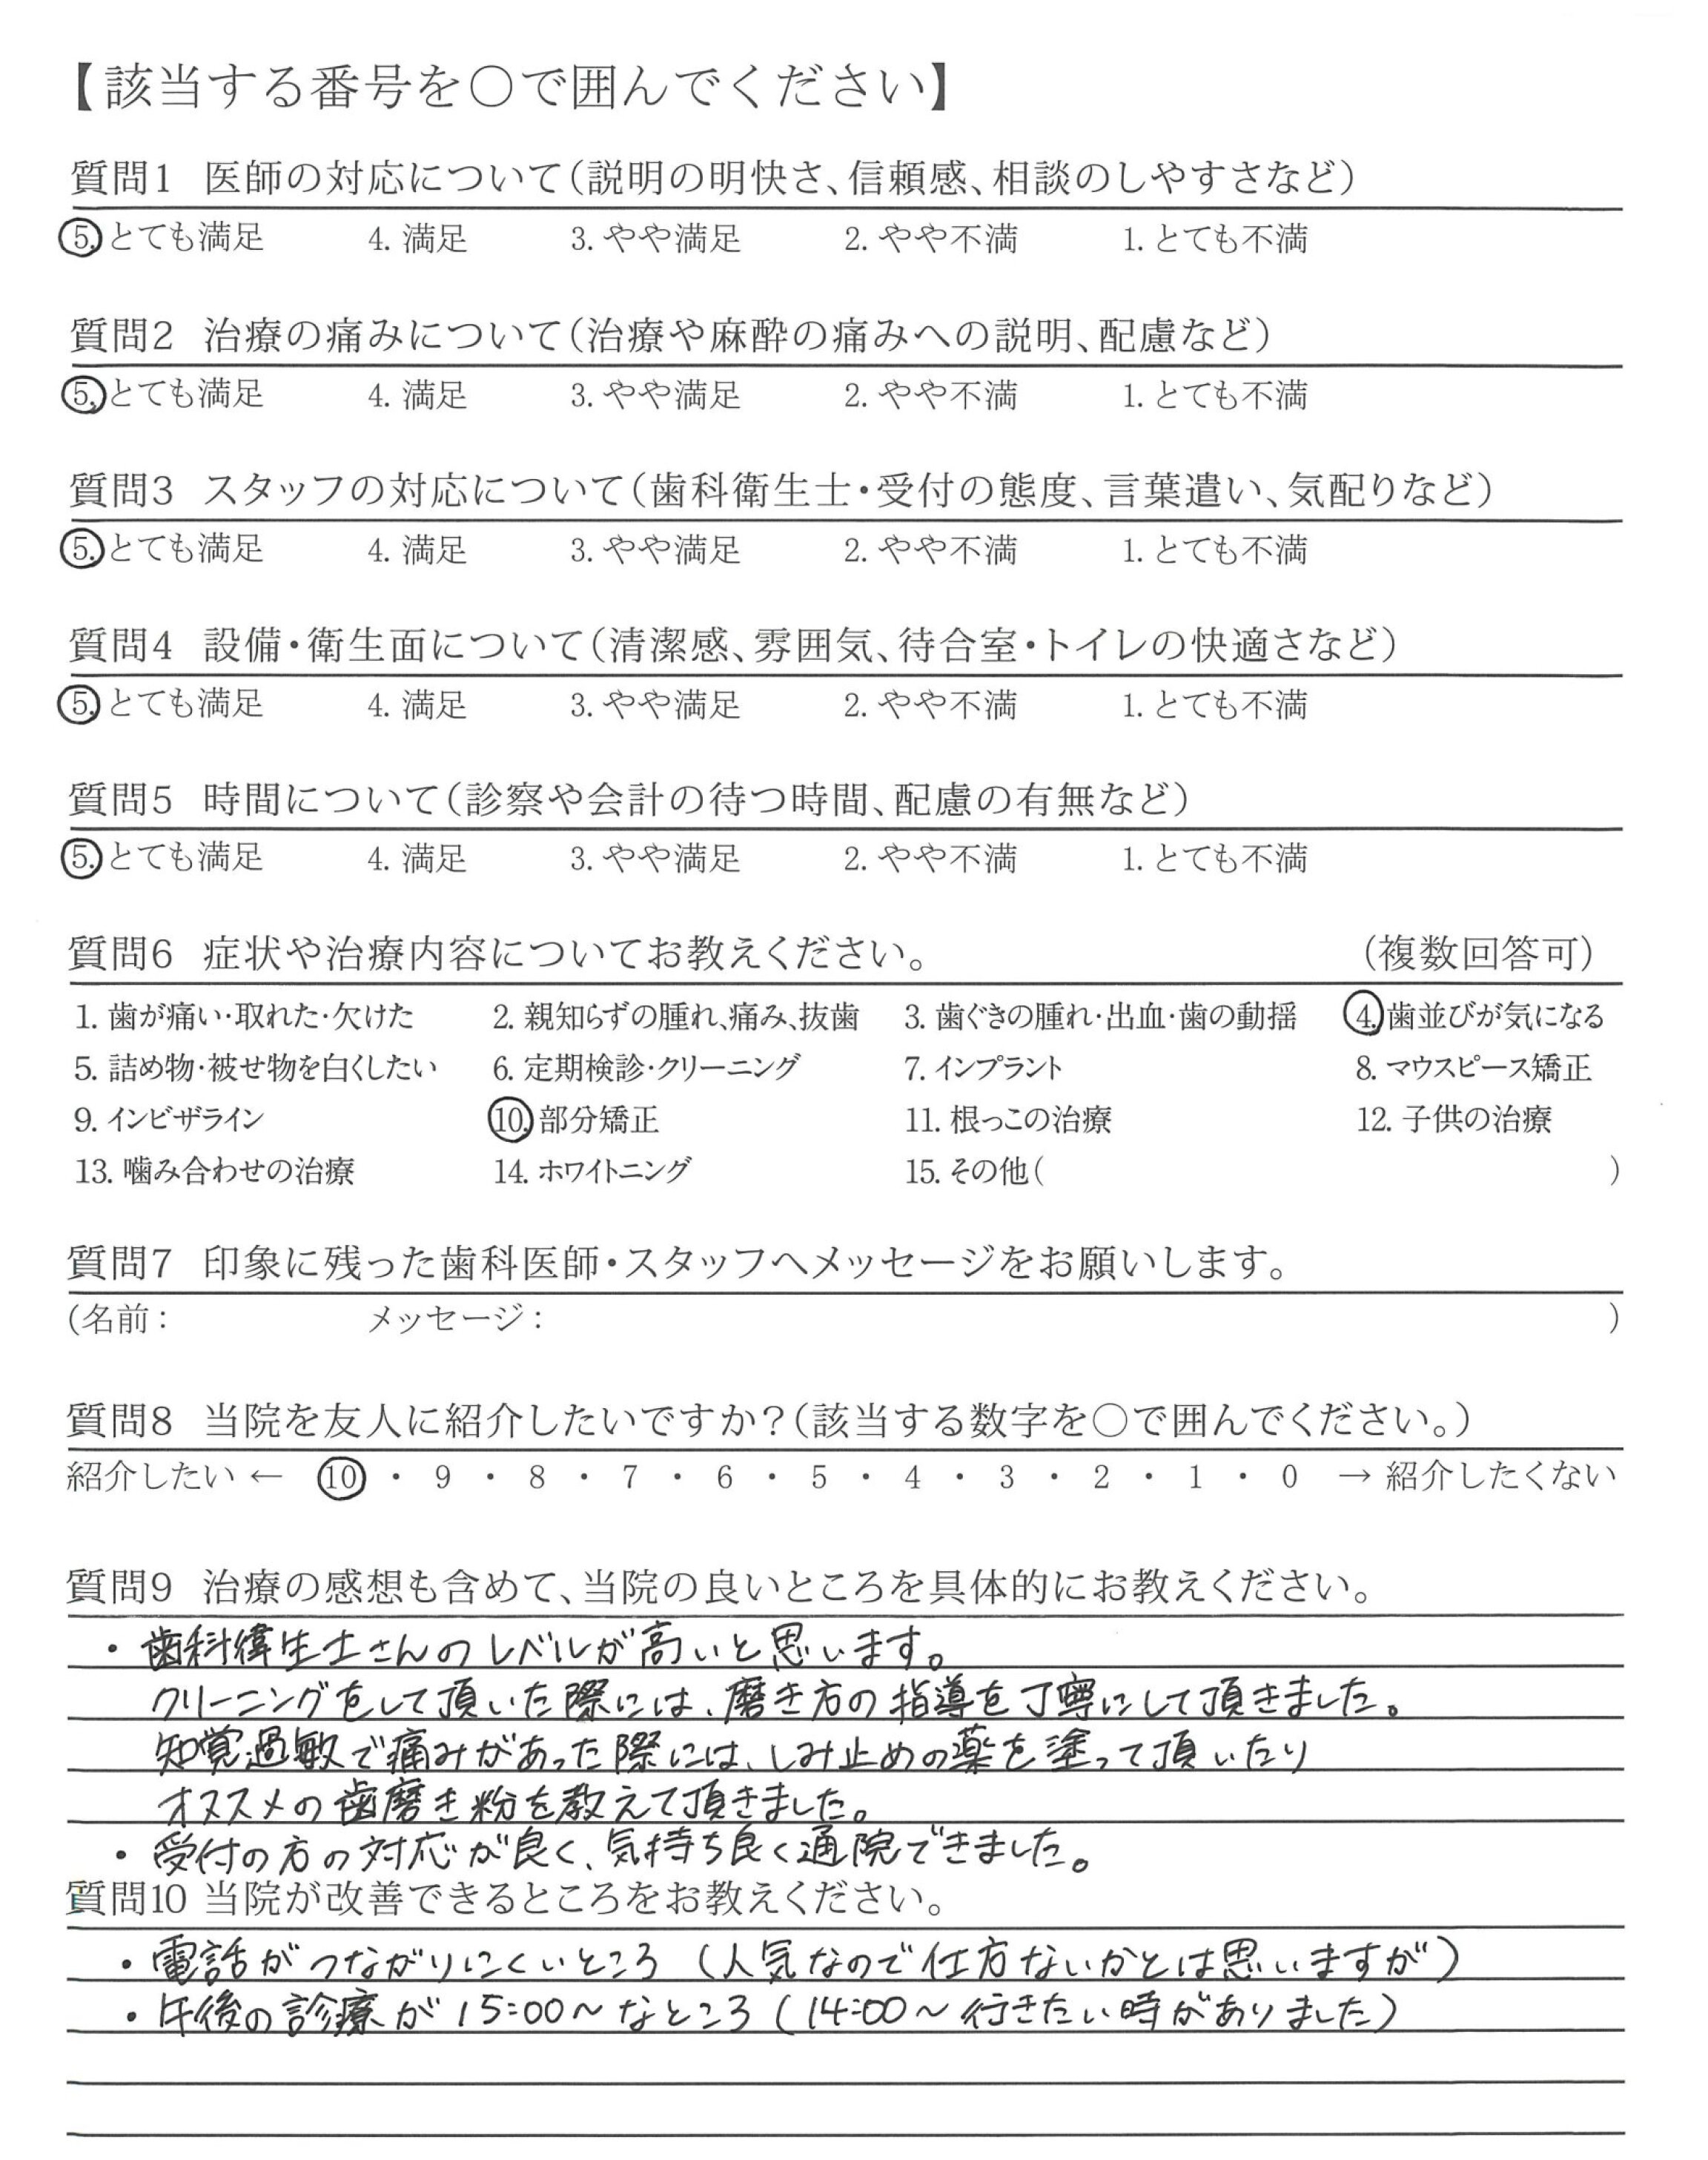 【該当する番号を○で囲んでください】
質問1 医師の対応について(説明の明快さ、信頼感、相談のしやすさなど)
5. とても満足 4. 満足 3. やや満足 2. やや不満 1. とても不満
質問2 治療の痛みについて(治療や麻酔の痛みへの説明、配慮など)
5. とても満足 4. 満足 3. やや満足 2. やや不満 1. とても不満
質問3 スタッフの対応について(歯科衛生士・受付の態度、言葉遣い、気配りなど)
5. とても満足 4. 満足 3. やや満足 2. やや不満 1. とても不満
質問4 設備・衛生面について(清潔感、雰囲気、待合室・トイレの快適さなど)
5. とても満足 4. 満足 3. やや満足 2. やや不満 1. とても不満
質問5 時間について(診察や会計の待つ時間、配慮の有無など)
5. とても満足 4. 満足 3. やや満足 2. やや不満 1. とても不満
質問6 症状や治療内容についてお教えください。 (複数回答可)
1. 歯が痛い・取れた・欠けた 2. 親知らずの腫れ、痛み、抜歯 3. 歯ぐきの腫れ・出血・歯の動揺 4. 歯並びが気になる
5. 詰め物・被せ物を白くしたい 6. 定期検診・クリーニング 7. インプラント 8. マウスピース矯正
9. インビザライン 10. 部分矯正 11. 根っこの治療 12. 子供の治療
13. 噛み合わせの治療 14. ホワイトニング 15. その他( )
質問7 印象に残った歯科医師・スタッフへメッセージをお願いします。
(名前: メッセージ: )
質問8 当院を友人に紹介したいですか?(該当する数字を○で囲んでください。)
紹介したい ← 10 ・ 9 ・ 8 ・ 7 ・ 6 ・ 5 ・ 4 ・ 3 ・ 2 ・ 1 ・ 0 → 紹介したくない
質問9 治療の感想も含めて、当院の良いところを具体的にお教えください。
・歯科衛生士さんのレベルが高いと思います。
クリーニングをして頂いた際には、磨き方の指導を丁寧にして頂きました。
知覚過敏で痛みがあった際には、しみ止めの薬を塗って頂いたり
オススメの歯磨き粉を教えて頂きました。
・受付の方の対応が良く、気持ち良く通院できました。
質問10 当院が改善できるところをお教えください。
・電話がつながりにくいところ (人気なので仕方ないかとは思いますが)
・午後の診療が15:00~なところ (14:00~行きたい時がありました)